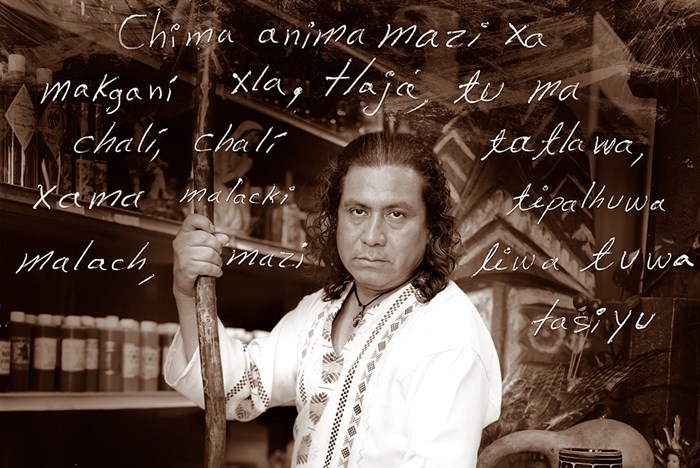 Chima anima mazi xa
makganí xla, tlaja, tu ma
chalí, chalí tatlawa,
xama malacki tipalhuwa
malach, mazi liwa tuwa
tasiyu